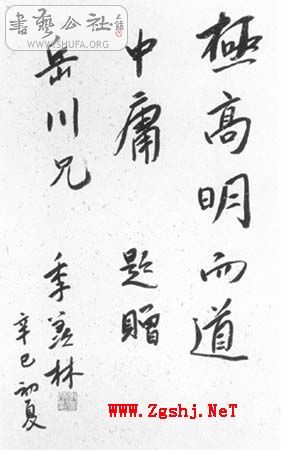 極高明而道
中庸 題贈
岳川兄
季羨林
辛巳初夏
書藝公社
WWW.SHUFA.ORG
www.ZgshJ.NeT